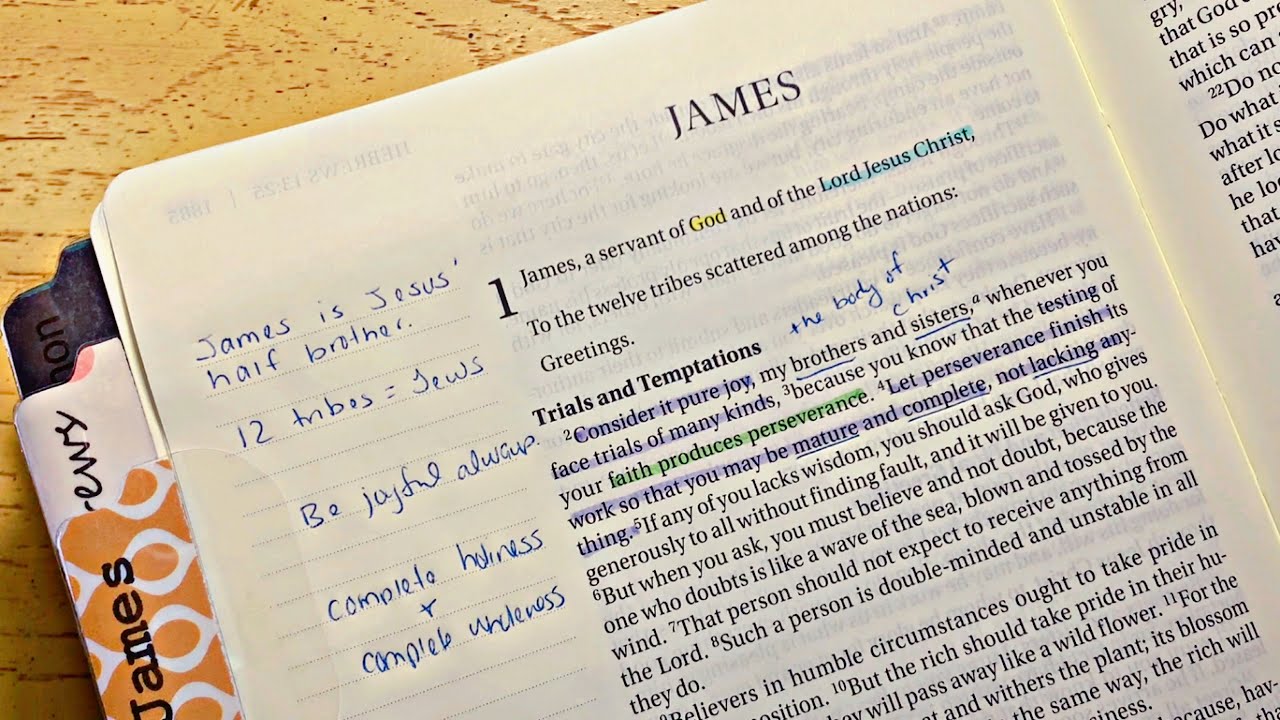 JAMES
1 James, a servant of God and of the Lord Jesus Christ,
To the twelve tribes scattered among the nations:
Greetings.
the body of
christ
Trials and Temptations
2Consider it pure joy, my brothers and sisters,a whenever you
face trials of many kinds, 3because you know that the testing of
your faith produces perseverance. 4Let perseverance finish its
work so that you may be mature and complete, not lacking any-
thing. 5If any of you lacks wisdom, you should ask God, who gives
generously to all without finding fault, and it will be given to you.
6But when you ask, you must believe and not doubt, because the
one who doubts is like a wave of the sea, blown and tossed by the
wind. 7That person should not expect to receive anything from
the Lord. 8Such a person is double-minded and unstable in all
they do.
9Believers in humble circumstances ought to take pride in
position. 10But the rich should take pride in their hu-
they will pass away like a wild flower. 11For the
and withers the plant; its blossom
the same way, the rich will
James is Jesus'
half brother.
12 tribes = Jews
Be joyful always.
complete
+
complete
HEBREWS 13:25 | 1885
James
gry,
that God
that is so
which can
22Do no
Do what i
what it s
after lo
he loo
that